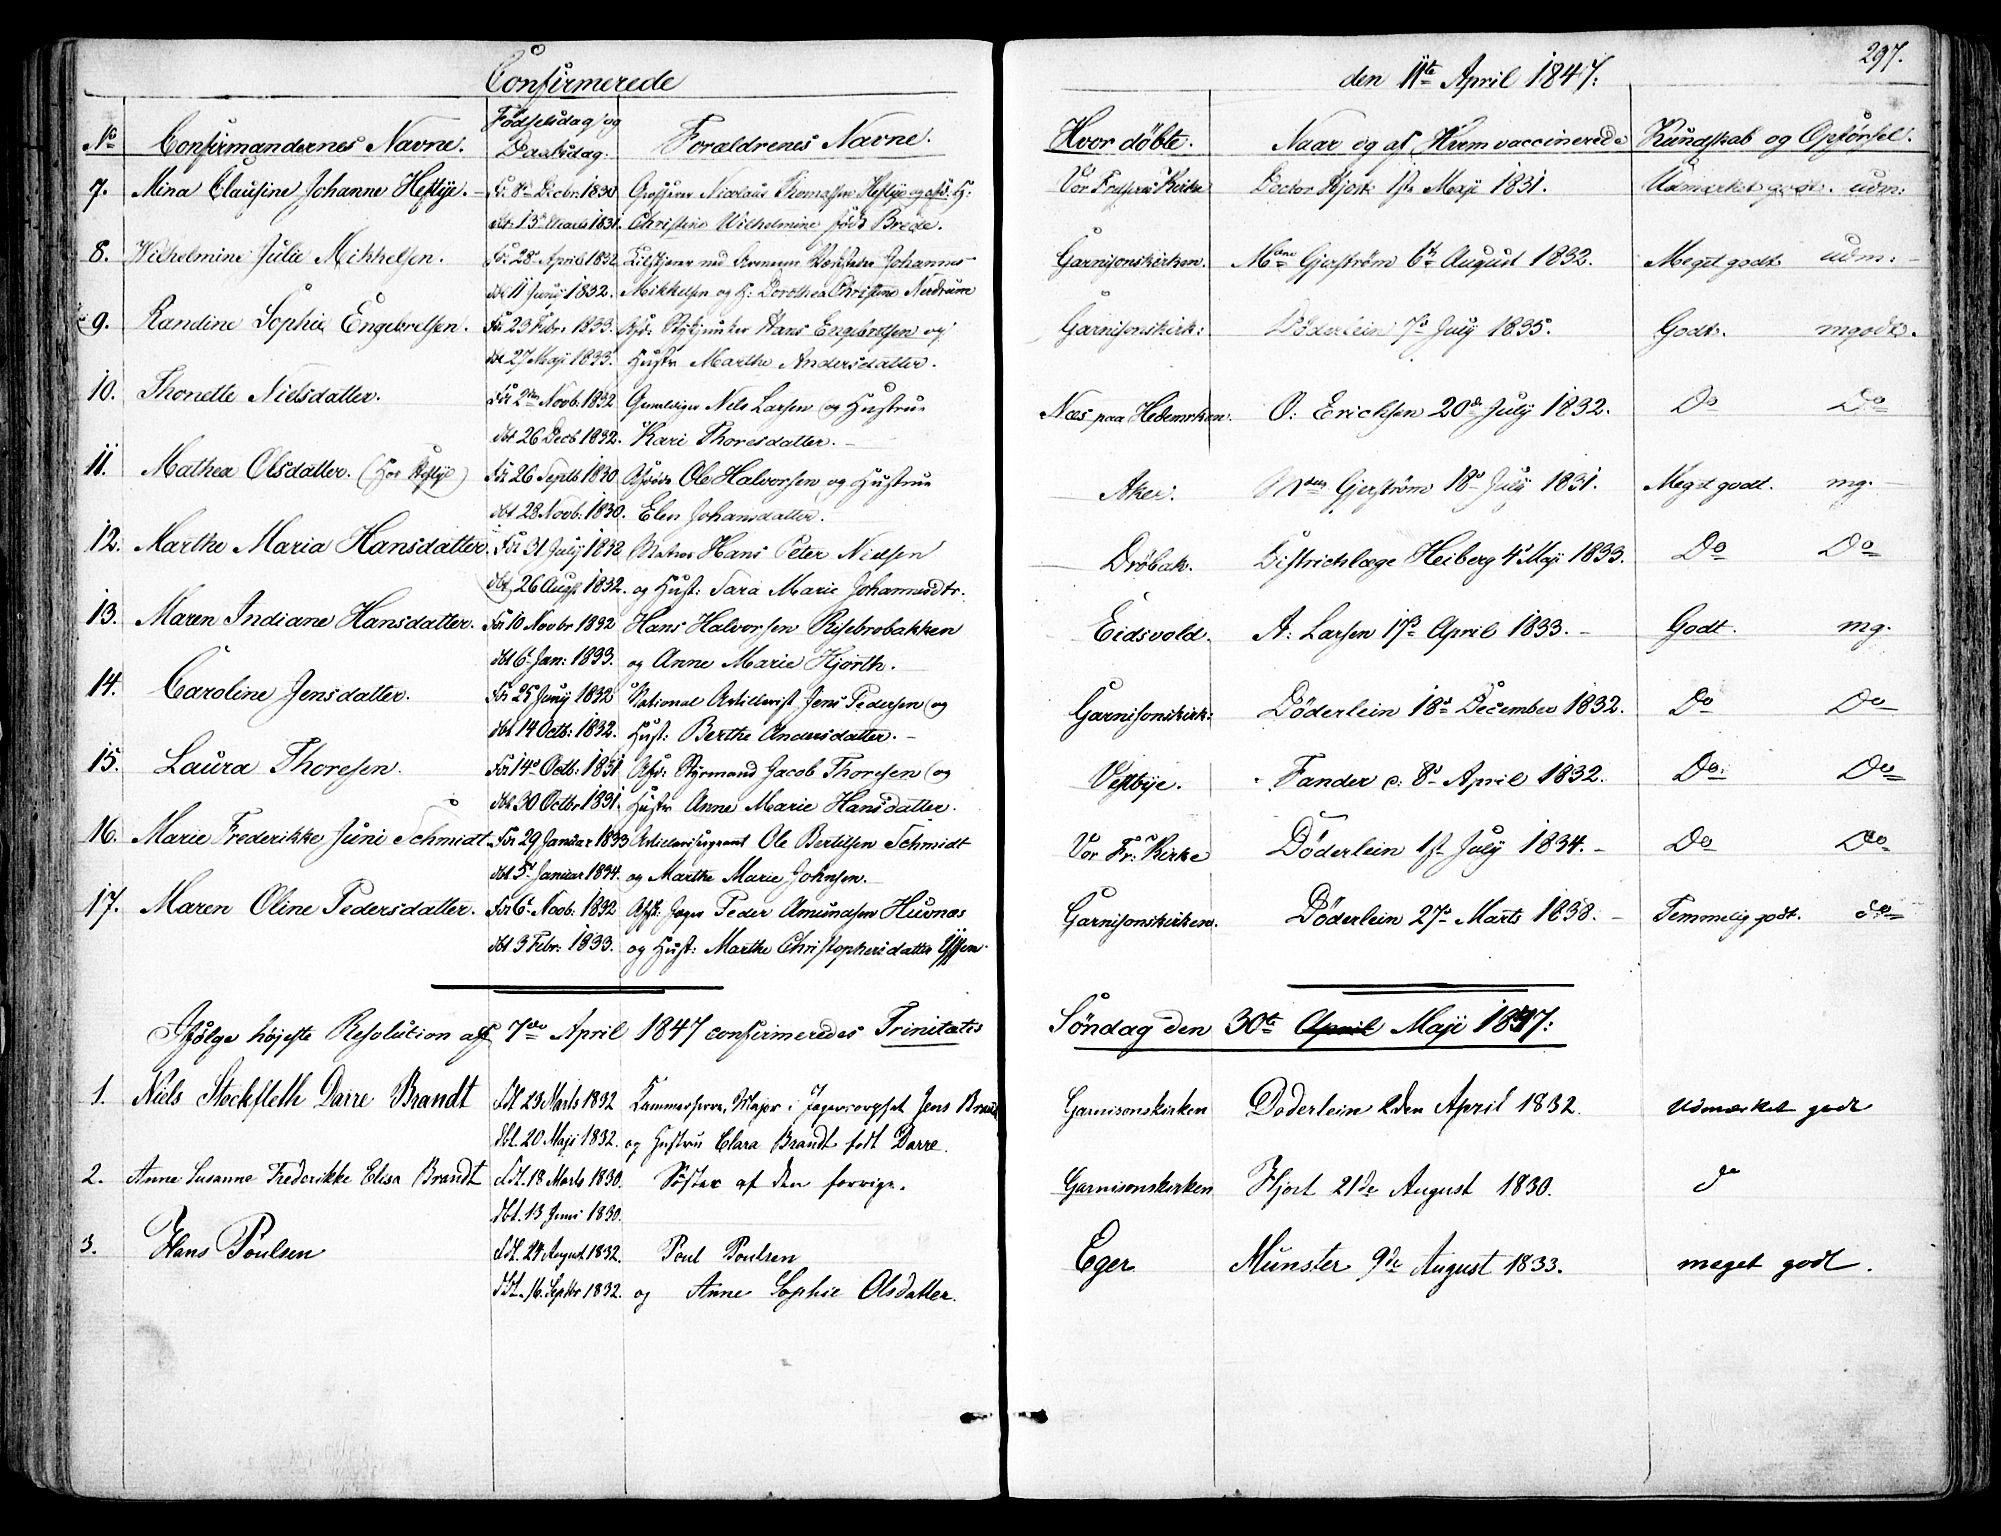 Confirmerede
No Confirmandernes Navne. Fødselsdag og Daabsdag. Forældrenes Navne.
7. Mina Clausine Johanne Heftye. Nicolaus Thomassen Heftye og
Christine Wilhelmine født Brede.
8. Wilhelmine Julie Mikkelsen. 28 April 1832 Johannes
dbt 11 Juny 1832. Mikkelsen og H: Dorothea Christine Nerdrum
9. Randine Sophie Engebretsen. 23 Febr 1833. Hans Engebretsen og
dbt 27 Maji 1833. Hustr Marthe Andersdatter.
10. Thonette Nielsdatter. Novb. 1832 Nels Larsen og Hustrue
dbt 26 Decb 1832. Kari Thoresdatter.
11. Mathea Olsdatter. (hos Heftye) 26 Septb 1830 Ole Halvorsen og Hustrue
dbt 28 Novb: 1830. Elen Johansdatter.
12. Marthe Maria Hansdatter. 31 July 1832 Matros Hans Peter Nielsen
dbt 26 Aug 1832. og Hust: Sara Marie Johannesdtr.
13. Maren Indiane Hansdatter. 10 Novbr 1832 Hans Halvorsen Risebrobakken
dbt 6 Jan: 1833. og Anne Marie Hjorth.
14. Caroline Jensdatter. 25 Juny 1832 National Artillerist Jens Pedersen og
dbt 14 Octb: 1832. Hust: Berthe Andersdatter.
15. Laura Thoresen. 14 Octb: 1831 Afd: Styrmand Jacob Thoresen og
dbt 30 Octbr 1831. Hustr Anne Marie Hansdatter.
16. Marie Frederikke Juni Schmidt 29 Januar 1833 Ole Bertelsen Schmidt
dbt 5 Januar 1834. og Marthe Marie Johnsen.
17. Maren Oline Pedersdatter. 6 Novb: 1832 Peder Amundsen
dbt 3 Febr: 1833. og Hust: Marthe Christophersdatter
Ifølge højeste Resolution af 7de April 1847 confirmeredes Trinitatis
1. Niels Stockfleth Darre Brandt fdt 23 Marts 1832 Kammerherre, Major i Jægercorpset Jens Brandt
dbt. 20 Maji 1832. og Hustru Clara Brandt født Darre.
2. Anne Susanne Frederikke Elisa Brandt fdt. 18 Marts 1830. Søster af den forrige.
dbt. 13 Juni 1830.
3. Hans Poulsen August 1832. Poul Poulsen
dbt. 16. Septbr 1832. og Anne Sophie Olsdatter.
297.
den 11te April 1847:
Hvor døbte. Naar og af Hvem vaccinerede Kundskab og Opførsel.
Vor Frelsers Kirke Doctor Hjort Maji 1831. Udmærket godt. udm:
Garnisonskirken. Gjerström 6te August 1832. Meget godt. udm:
Garnisonskirk: Döderlein 7de July 1835. Godt. mgodt.
Næs paa Hedemarken. O: Erichsen 20de July 1832. Do Do
Aker. Gjerström 18de July 1831. Meget godt. mg.
Drøbak. Districhlæge Heiberg 4de Maji 1833. Do Do
Eidsvold. A: Larsen 17de April 1833. Godt. mg.
Garnisonskirk: Döderlein 18de December 1832. Do Do
Vestbye. Fander 8de April 1832. Do Do
Vor Fr: Kirke Döderlein 1st July 1834. Do Do
Garnisonskirken. Döderlein 27de Marts 1838. Temmelig godt. do
Søndag den 30te April Maji 1847:
Garnisonskirken Døderlein 2den April 1832. Udmærket godt
Garnisonskirken Hjort 21de August 1830. do
Eger Munster 9de August 1833. meget godt.